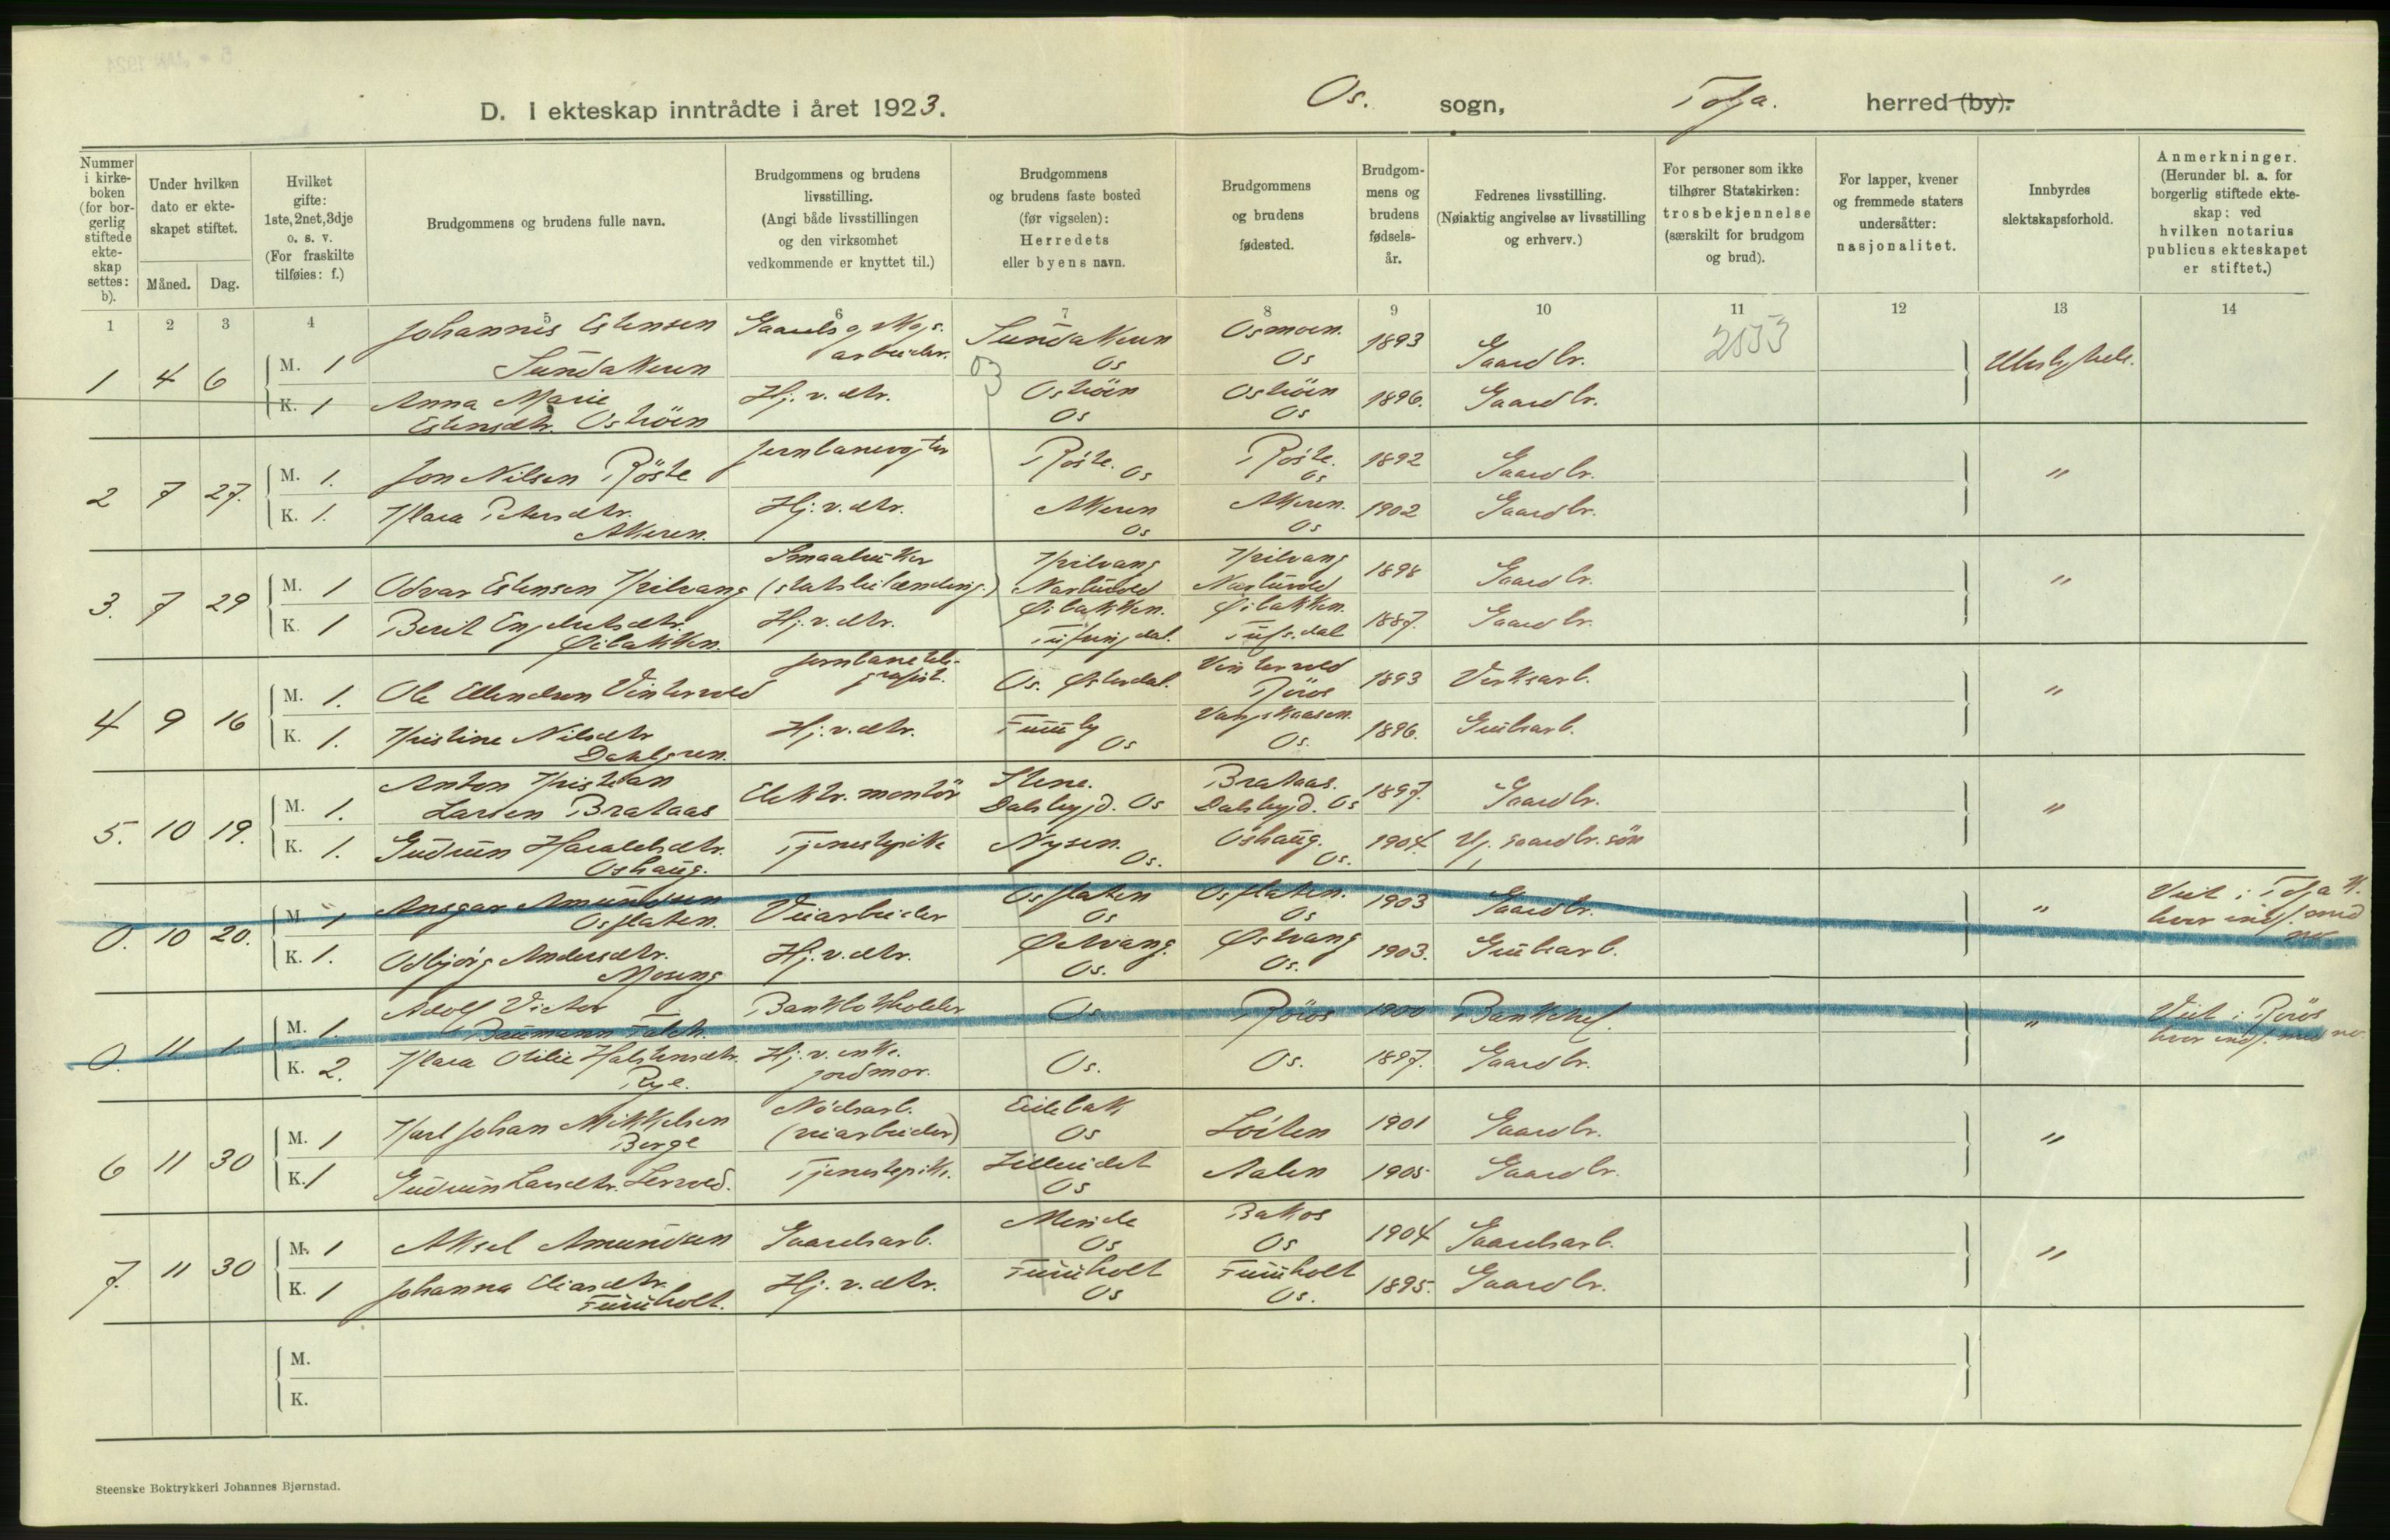 D. I ekteskap inntrådte i året 1923.
Os. sogn, Tolga. herred (by).
Nummer i kirkeboken (for borgerlig stiftede ekteskap settes: b).
Under hvilken dato er ekteskapet stiftet.
Måned. Dag.
Hvilket gifte: 1ste, 2net, 3dje o. s. v. (For fraskilte tilføies: f.)
Brudgommens og brudens fulle navn.
Brudgommens og brudens livsstilling. (Angi både livsstillingen og den virksomhet vedkommende er knyttet til.)
Brudgommens og brudens faste bosted (før vigselen): Herredets eller byens navn.
Brudgommens og brudens fødested.
Brudgommens og brudens fødselsår.
Fedrenes livsstilling. (Nøiaktig angivelse av livsstilling og erhverv.)
For personer som ikke tilhører Statskirken: trosbekjennelse (særskilt for brudgom og brud).
For lapper, kvener og fremmede staters undersåtter: nasjonalitet.
Innbyrdes slektskapsforhold.
Anmerkninger. (Herunder bl. a. for borgerlig stiftede ekteskap: ved hvilken notarius publicus ekteskapet er stiftet.)
1 2 3 4 5 6 7 8 9 10 11 12 13 14
2553
1 4 6 M. 1 Johannes Estensen Sundmoen Gaards arbeider. Os Osmoen. Os 1893 Gaardbr.
K. 1 Anna Marie Estensdtr. Oströen Hj. v. dtr. Oströen Os Oströen Os 1896. Gaardbr.
2 7 27. M. 1. Jon Nilsen Röste Jernbanevogter Röste. Os Röste. Os 1892 Gaardbr. "
K. 1. Klara Petersdtr. Hj. v. dtr. Os Os 1902 Gaardbr.
3. 7 29 M. 1 Odvar Estensen Kvilvang Smaabruker Kvilvang Narbuvold Kvilvang Narbuvold 1898 Gaardbr. "
K. 1 Berit Engebretsdtr. Øibakken. Hj. v. dtr. Øibakken. Tufsingdal. Øibakken. Tufs.dal 1887. Gaardbr.
4 9 16 M. 1. Ole Ellendsen Vintervold Jernbanetelegrafist. Os. Østerdal. Vintervold Röros 1893 Verksarb. "
K. 1. Kristine Nilsdtr Dahlgren. Hj. v. dtr. Os Vangskaasen. Os. 1896. Grubearb.
5. 10 19. M. 1. Anton Kristian Larsen Brataas Elektr. montör Stene. Dalsbygd. Os Brataas. Dalsbygd. Os 1897. Gaardbr. "
K. 1. Gudrun Haraldsdtr. Oshaug. Tjenestepike Nysen. Os. Oshaug. Os. 1904. gaardbr. sön
0. 10 20. M. 1 Ansgar Amundsen Osflaten. Veiarbeider Osflaten Os Osflaten. Os 1903 Gaardbr. " Viet i Tolga K. hvor indf. med no
K. 1. Odbjörg Andersdtr. Moseng Hj. v. dtr. Østvang. Os. Østvang Os. 1903. Grubearb.
0. 11 1. M. 1. Adolf Victor Baumann Falch. Bankbokholder Os Röros 1900 Bankchef. " Viet i Röros hvor indf. med no
K. 2. Klara Otilie Halstensdtr. Rye. Hj. v. enke. jordmor. Os. Os. 1897. Gaardbr.
6 11 30 M. 1 Karl Johan Mikkelsen Berge Nödsarb. (veiarbeider) Eidebak Os Löiten 1901 Gaardbr. "
K. 1 Gudrun Larsdtr. Lervold. Tjenestepike. Os Aalen 1905 Gaardbr.
7. 11 30 M. 1 Aksel Amundsen Gaardsarb. Os Bakos Os 1904 Gaardsarb. "
K. 1 Johanna Eliasdtr. Tuuüholt. Hj. v. dtr. Os Os. 1895. Gaardbr.
M.
K.
Steenske Boktrykkeri Johannes Bjørnstad.